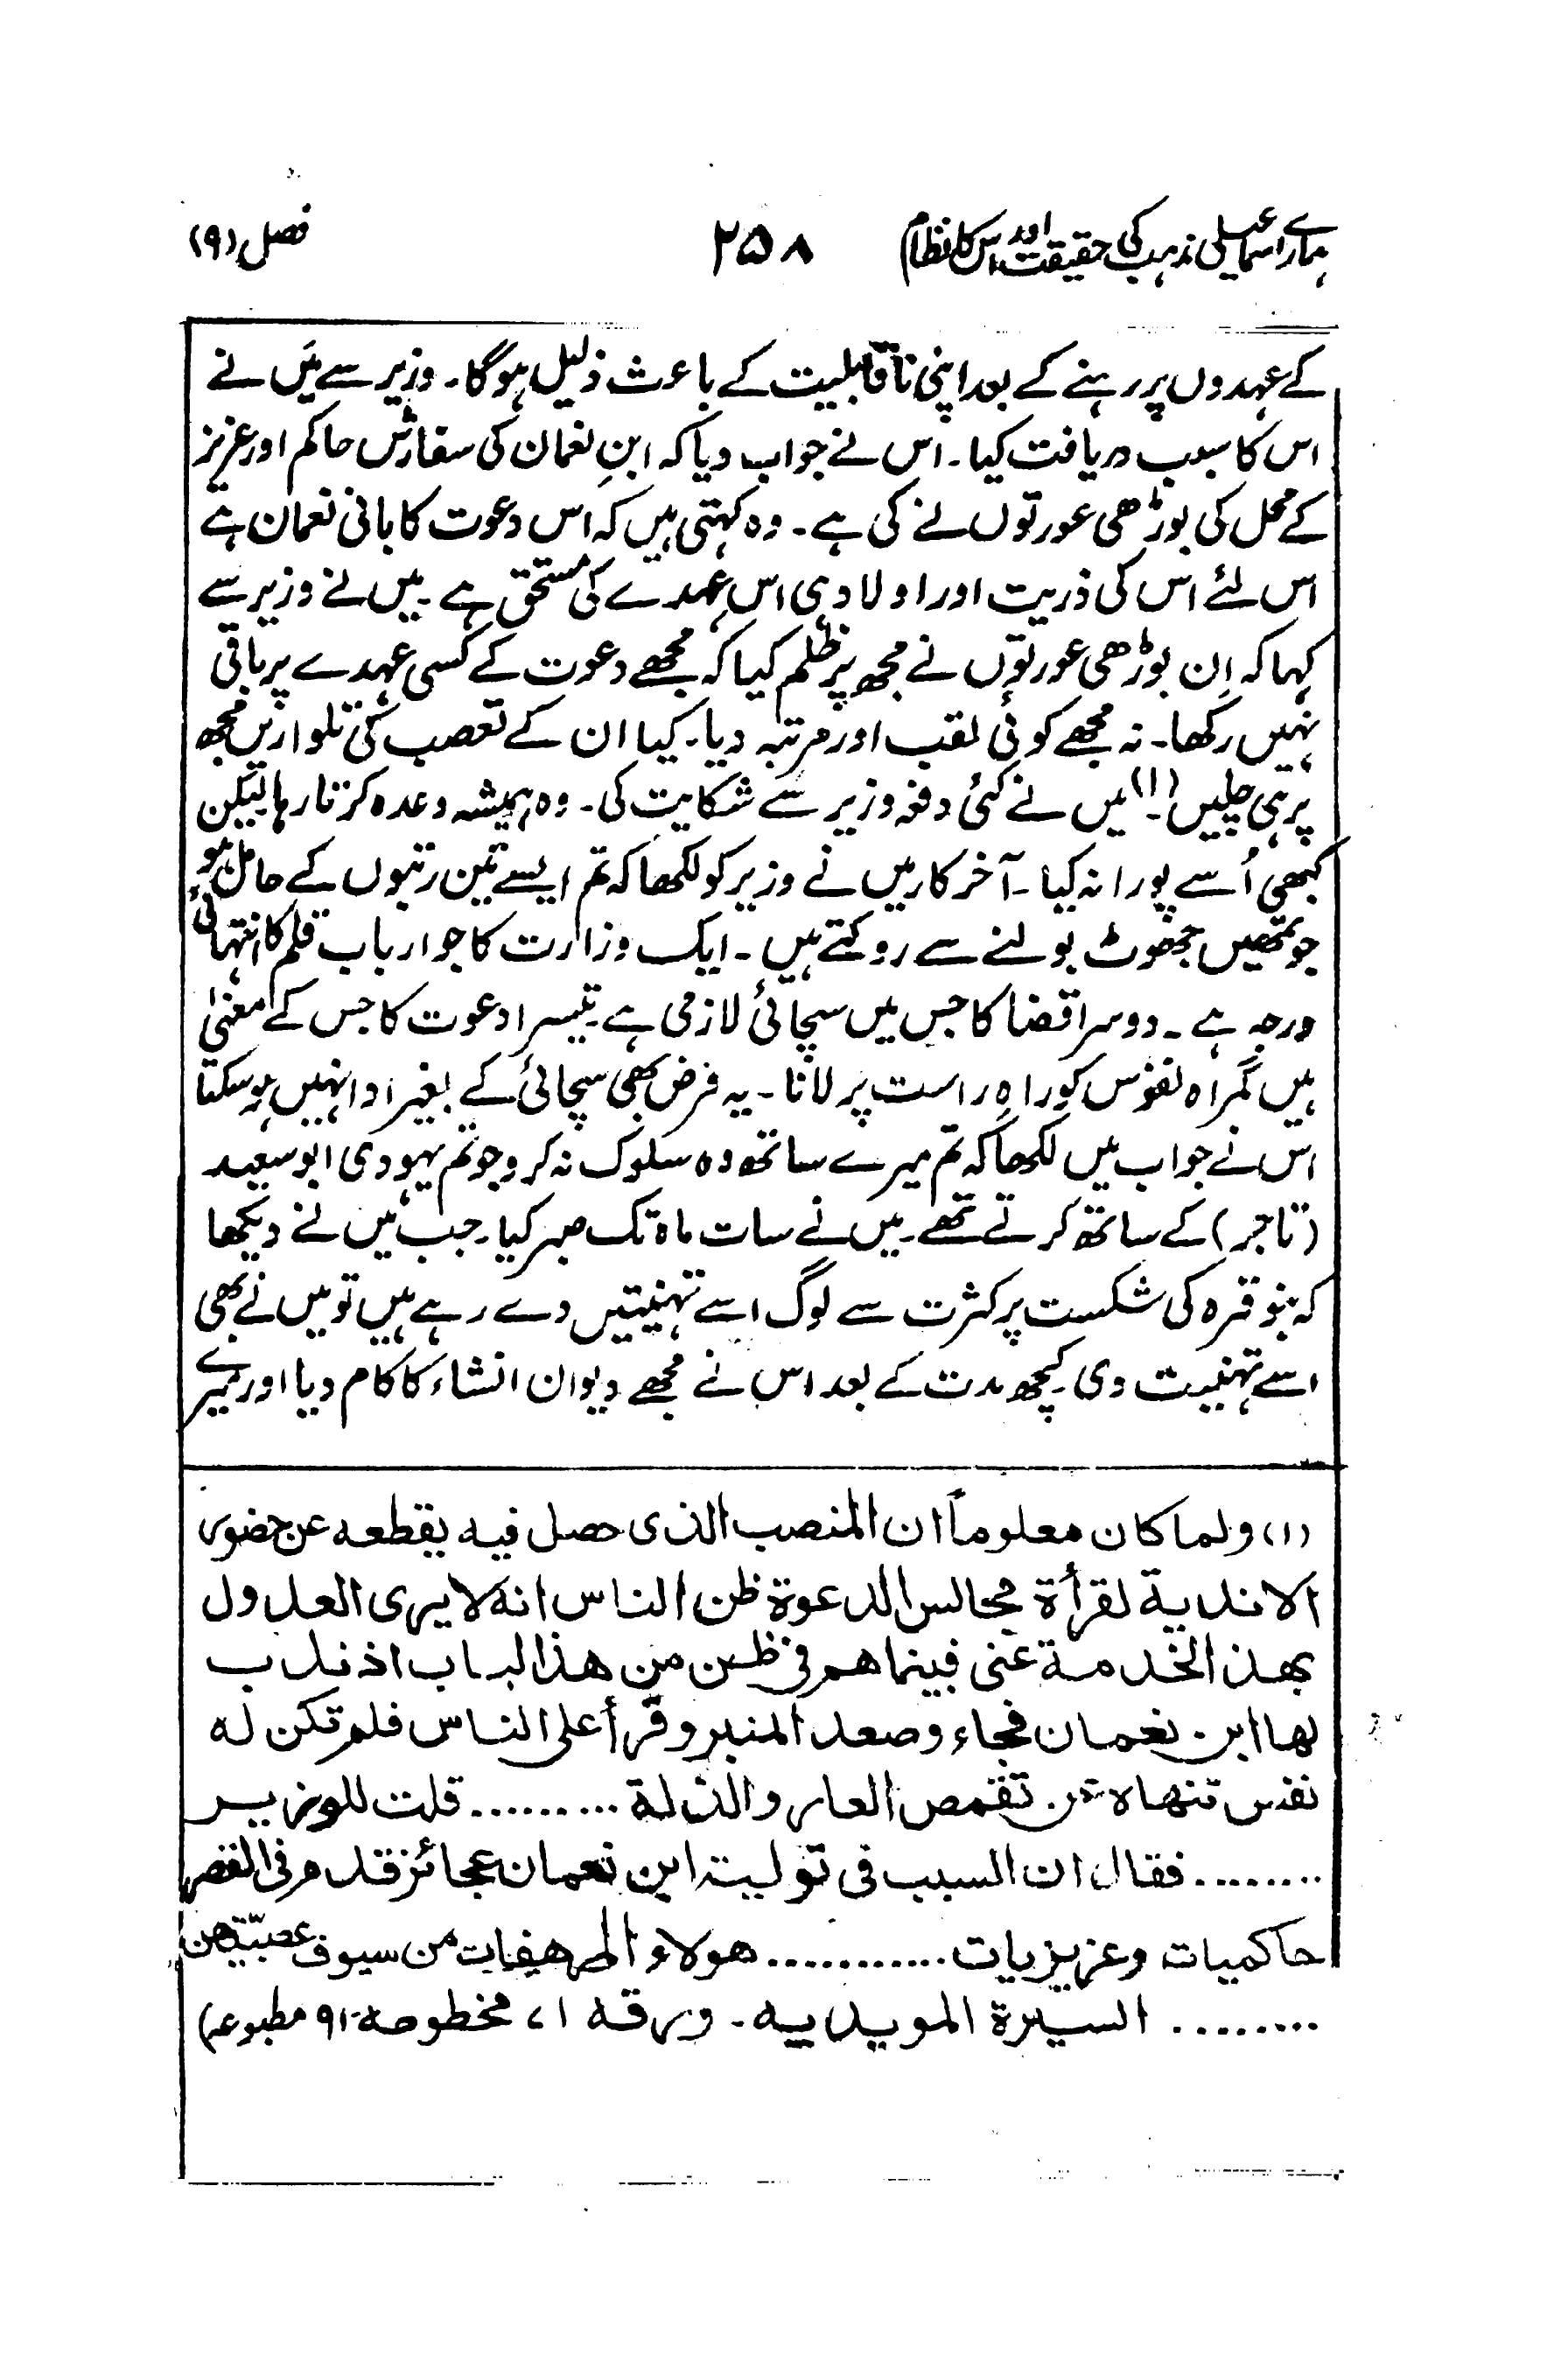 ہمارے اسماعیلی مذہب کی حقیقت اور اس کا نظام ۲۵۸ فصل (۹)
کے عہدوں پر رہنے کے بعد اپنی ناقابلیت کے باعث ذلیل ہوگا۔ وزیر سے میں نے
اس کا سبب دریافت کیا۔ اس نے جواب دیا کہ ابنِ نعمان کی سفارش حاکم اور عزیز
کے محل کی بوڑھی عورتوں نے کی ہے۔ وہ کہتی ہیں کہ اس دعوت کا بانی نعمان ہے
اس لئے اس کی ذریت اور اولاد ہی اس عہدے کی مستحق ہے۔ میں نے وزیر سے
کہا کہ اِن بوڑھی عورتوں نے مجھ پر ظلم کیا کہ مجھے دعوت کے کسی عہدے پر باقی
نہیں رکھا۔ نہ مجھے کوئی لقب اور مرتبہ دیا۔ کیا ان کے تعصب کی تلواریں مجھ
پر ہی چلیں (۱)۔ میں نے کئی دفعہ وزیر سے شکایت کی۔ وہ ہمیشہ وعدہ کرتا رہا لیکن
کبھی اُسے پورا نہ کیا۔ آخر کار میں نے وزیر کو لکھا کہ تم ایسے تین رتبوں کے حامل ہو
جو تمھیں جھوٹ بولنے سے روکتے ہیں۔ ایک وزارت کا جو ارباب قلم کا انتہائی
درجہ ہے۔ دوسرا قضا کا جس میں سچائی لازمی ہے۔ تیسرا دعوت کا جس کے معنیٰ
ہیں گمراہ نفوس کو راہِ راست پر لانا۔ یہ فرض بھی سچائی کے بغیر ادا نہیں ہو سکتا
اس نے جواب میں لکھا کہ تم میرے ساتھ وہ سلوک نہ کرو جو تم یہودی ابو سعید
(تاجر) کے ساتھ کرتے تھے۔ میں نے سات ماہ تک صبر کیا۔ جب میں نے دیکھا
کہ بنو قرہ کی شکست پر کثرت سے لوگ اسے تہنیتیں دے رہے ہیں تو میں نے بھی
اسے تہنیت دی۔ کچھ مدت کے بعد اس نے مجھے دیوان انشاء کا کام دیا اور میرے
(۱) ولما کان معلوماً ان المنصب الذی حصل فیه یقطعه عن حضور
الاندیة لقرأة مجالس الدعوة ظن الناس انه لا یری العدول
بهذ الخدمة عنی فبینما هم فی ظن من هذا الباب اذ ندب
لها ابن نعمان فجاء وصعد المنبر وقرأ علی الناس فلم تکن له
نفس تنهاه عن تقمص العار والذلة .......... قلت للوزیر
........ فقال ان السبب فی تولیة ابن نعمان عجائز قدم فی القصر
حاکمیات وعزیزیات ........... هولاء المرهفات من سیوف عصبیّتهن
........ السیرة المویدیه۔ ورقه ۷۱ مخطوطه۔ ۹۱ مطبوعہ)